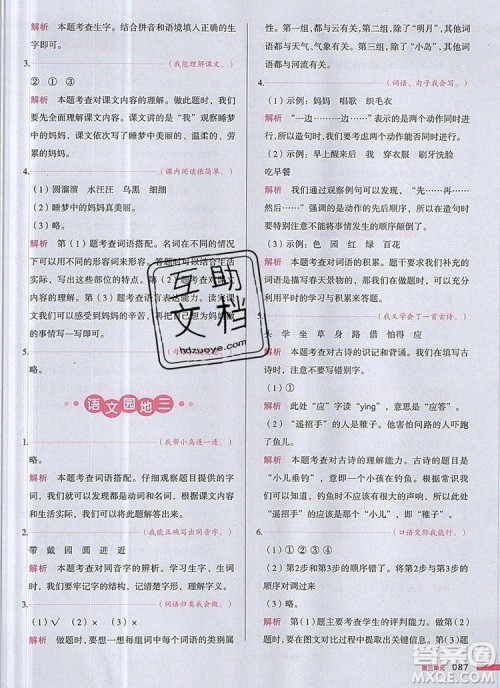 解析 本题考查生字。结合拼音和语境填入正确的生
字即可。
3.（我能理解课文。）
② ① ③
解析 本题考查对课文内容的理解。做此题时，我们
要先全面理解课文内容。课文讲的是“我”观察睡梦
中的妈妈，发现睡梦中的妈妈是美丽的、温柔的、劳
累的妈妈。
4.（课内阅读很简单。）
（1）圆溜溜 水汪汪 乌黑 细细
（2）睡梦中的妈妈真美丽。
（3）略。
解析 第（1）题考查词语搭配。名词在不同的情况下
可以用不同的形容词来形容。答题时要注意结合生活
实际，写出这些部位的特点。第（2）题
考查语言表达能力。读完课文
我们可以感受到妈妈的辛苦，
事情写一写即可。
5.
略。
语文园地三
1.（我带小鸟连一连。）
略。
解析 本题考查词语搭配。仔细观察题目提供的词
语，我们可以发现都是动词和名词，根据课文内容和
生活实际搭配即可。
2.（我能正确写出同音字。）
带 戴 园 圆 进 近
解析 本题考查对同音字的辨析。学习生字时，我们
要牢记字形和字义，根据字义来记忆字形。
3.（词语归类我会做。）
（1）√ （2）× （3）√
解析 做题时，要先看一下每组词的类别属
第（1）题
语都与天气有关。第（2）题的“明月”，其他词
语都与春天有关。第（3）题的“小岛”，其他词
语都与河流有关。
4.（词语、句子我会写。）
（1）示例：妈妈 唱歌 织毛衣
解析 “一边……一边……”表示的是两个动作同时进
行，造句时，我们要注意这两个动作要能够同时进行。
（2）示例：早上醒来后 我 穿衣服 刷牙洗脸
吃早餐
解析 我们通过观察例句可以发现，“先……再……
然后……”强调的是动作的先后顺序，所以我们在仿
写造句时一定要注意不能将事情发生的先后顺序写
颠倒。
（3）示例：色 园 红 绿 百花
解析 本题考查对词语的积累。题干要求填写的词
语是描写春天景物的，根据提示填空即可。这就要求
充分利用平时的学习与积累来解题。
5.（我又学会了一首古诗。）
头 学 坐 草 身 路 借 怕 得 应
解析 本题考查对古诗的识记和背诵。我们填写时要
注意不要写错别字。
2.
解析 此处“应”字读“yìng”，意思是回应，理睬。
“遥招手”的人是稚子。他不应人的原因是害怕吓跑
了鱼儿。
3.
解析 本题考查对古诗的理解能力。古诗的题目是
“小儿垂钓”，“小儿”是小孩子的意思，“垂钓”是
钓鱼的意思，钓鱼时要安静，以免吓跑鱼儿，所以
“遥招手”的应该是那个“小儿”，即“稚子”。
6.（口语交际我能行。）
（1）①④③②
（2）第2步和第3步的顺序调换了。
解析 第（1）题主要考查学生的评判能力。做题时，
要在图文对比过程中提取出关键信息。第（2）题
第三单元 087
互助文档
hdzuoye.com